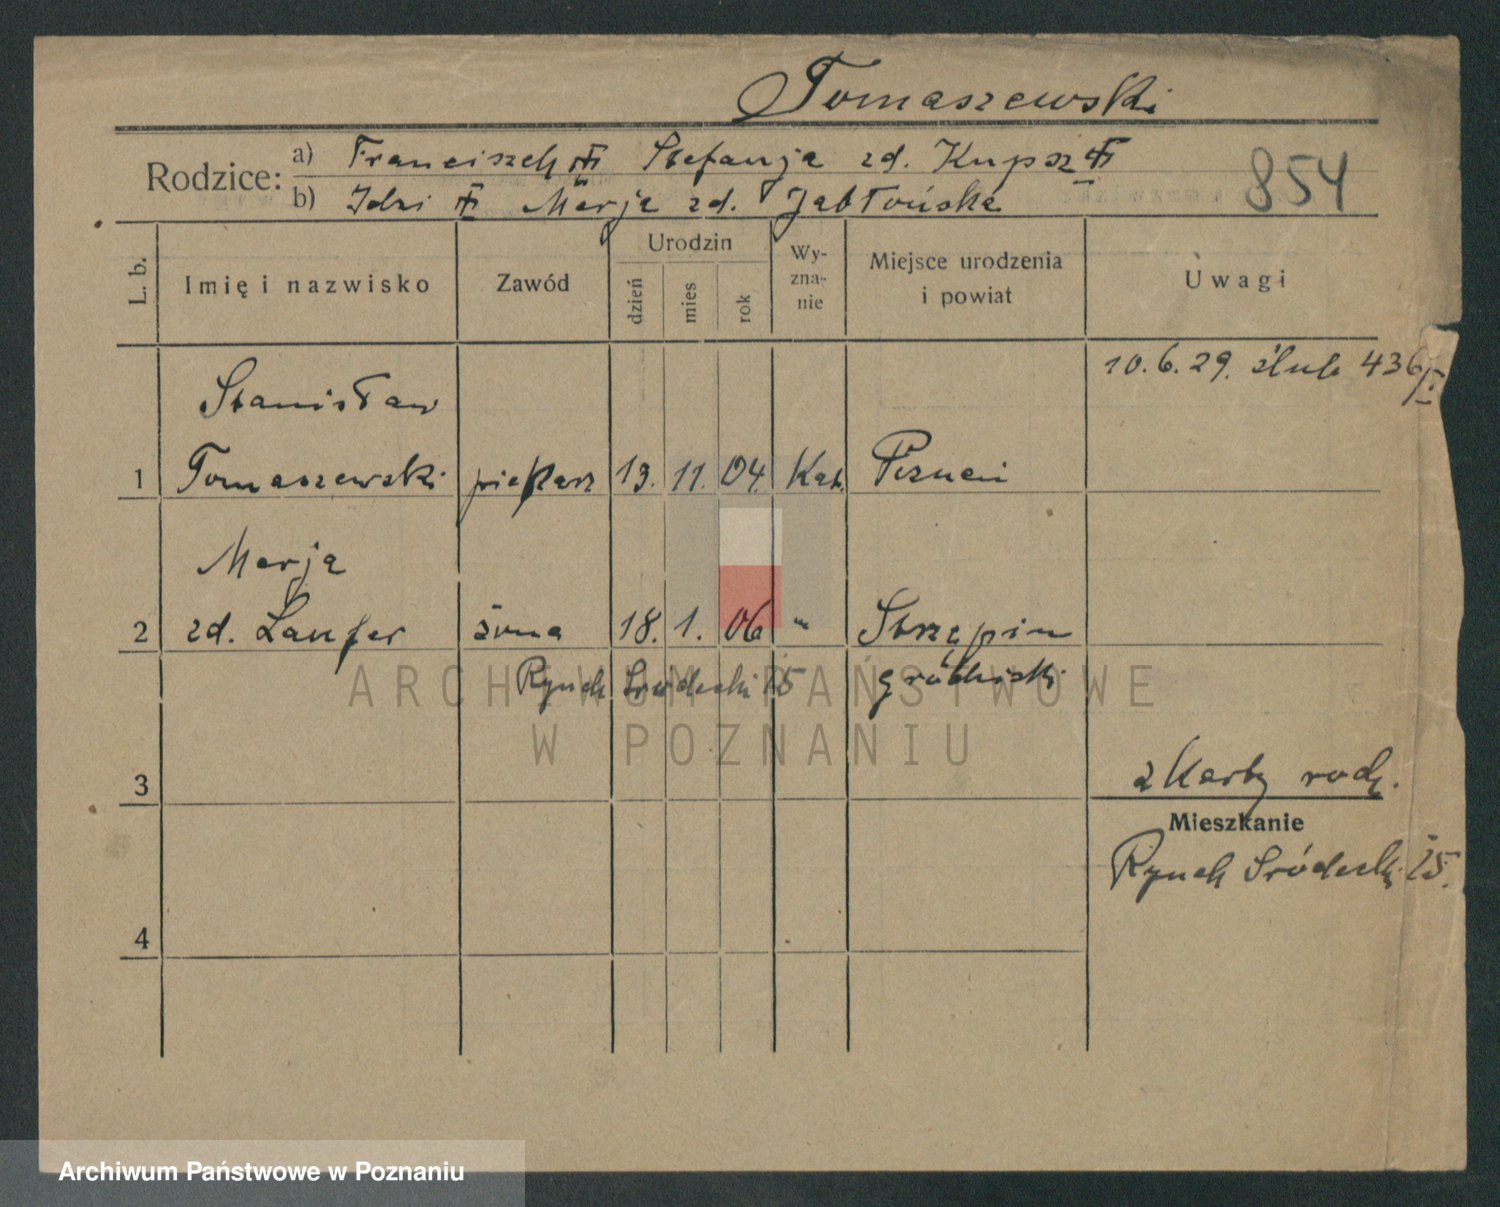 Tomaszewski
Rodzice:
a) Franciszek Stefanja zd. Kupsz
b) Idzi Marja zd. Jabłońska
854
L. b. Imię i nazwisko Zawód Urodzin dzień mies rok Wyzna-nie Miejsce urodzenia i powiat Uwagi
10.6.29. ślub 436/I.
Stanisław
1 Tomaszewski piekarz 19. 11. 04. Kat. Poznań
Marja
2 zd. Laufer żona 18. 1. 06 " Strzępin
Rynek Śródecki 15 gródziski
ARCHIWUM PAŃSTWOWE
W POZNANIU
z Karty rodz.
3
Mieszkanie
Rynek Śródecki 15.
4
Archiwum Państwowe w Poznaniu